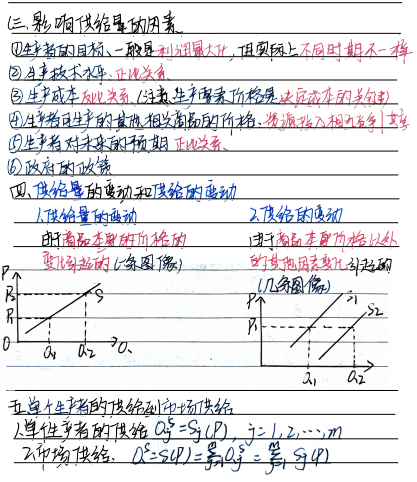 三.影响供给量的因素
①生产者的目标、一般是利润最大化,但实际上不同时期不一样
②生产技术水平.正比关系.
③生产成本反比关系.(注意:生产要素价格是决定成本的关键)
④生产者可生产的其他相关商品的价格.资源投入相互竞争
⑤生产者对未来的预期 正比关系.
⑥政府的政策
四、供给量的变动和供给的变动
1.供给量的变动 2.供给的变动
由于商品本身的价格的 由于商品本身价格以外
变化引起的(一条图像) 的其他因素变化引起的
(几条图像)
P P
P₂ S S₁ S₂
P₁ P₁
O Q₁ Q₂ Q. Q₁ Q₂
五.单个生产者的供给到市场供给
1.单个生产者的供给 Qⱼˢ=Sⱼ(P), j=1,2,…,m
2.市场供给. Qˢ=S(P)=∑ᵐⱼ₌₁Qⱼˢ=∑ᵐⱼ₌₁Sⱼ(P)